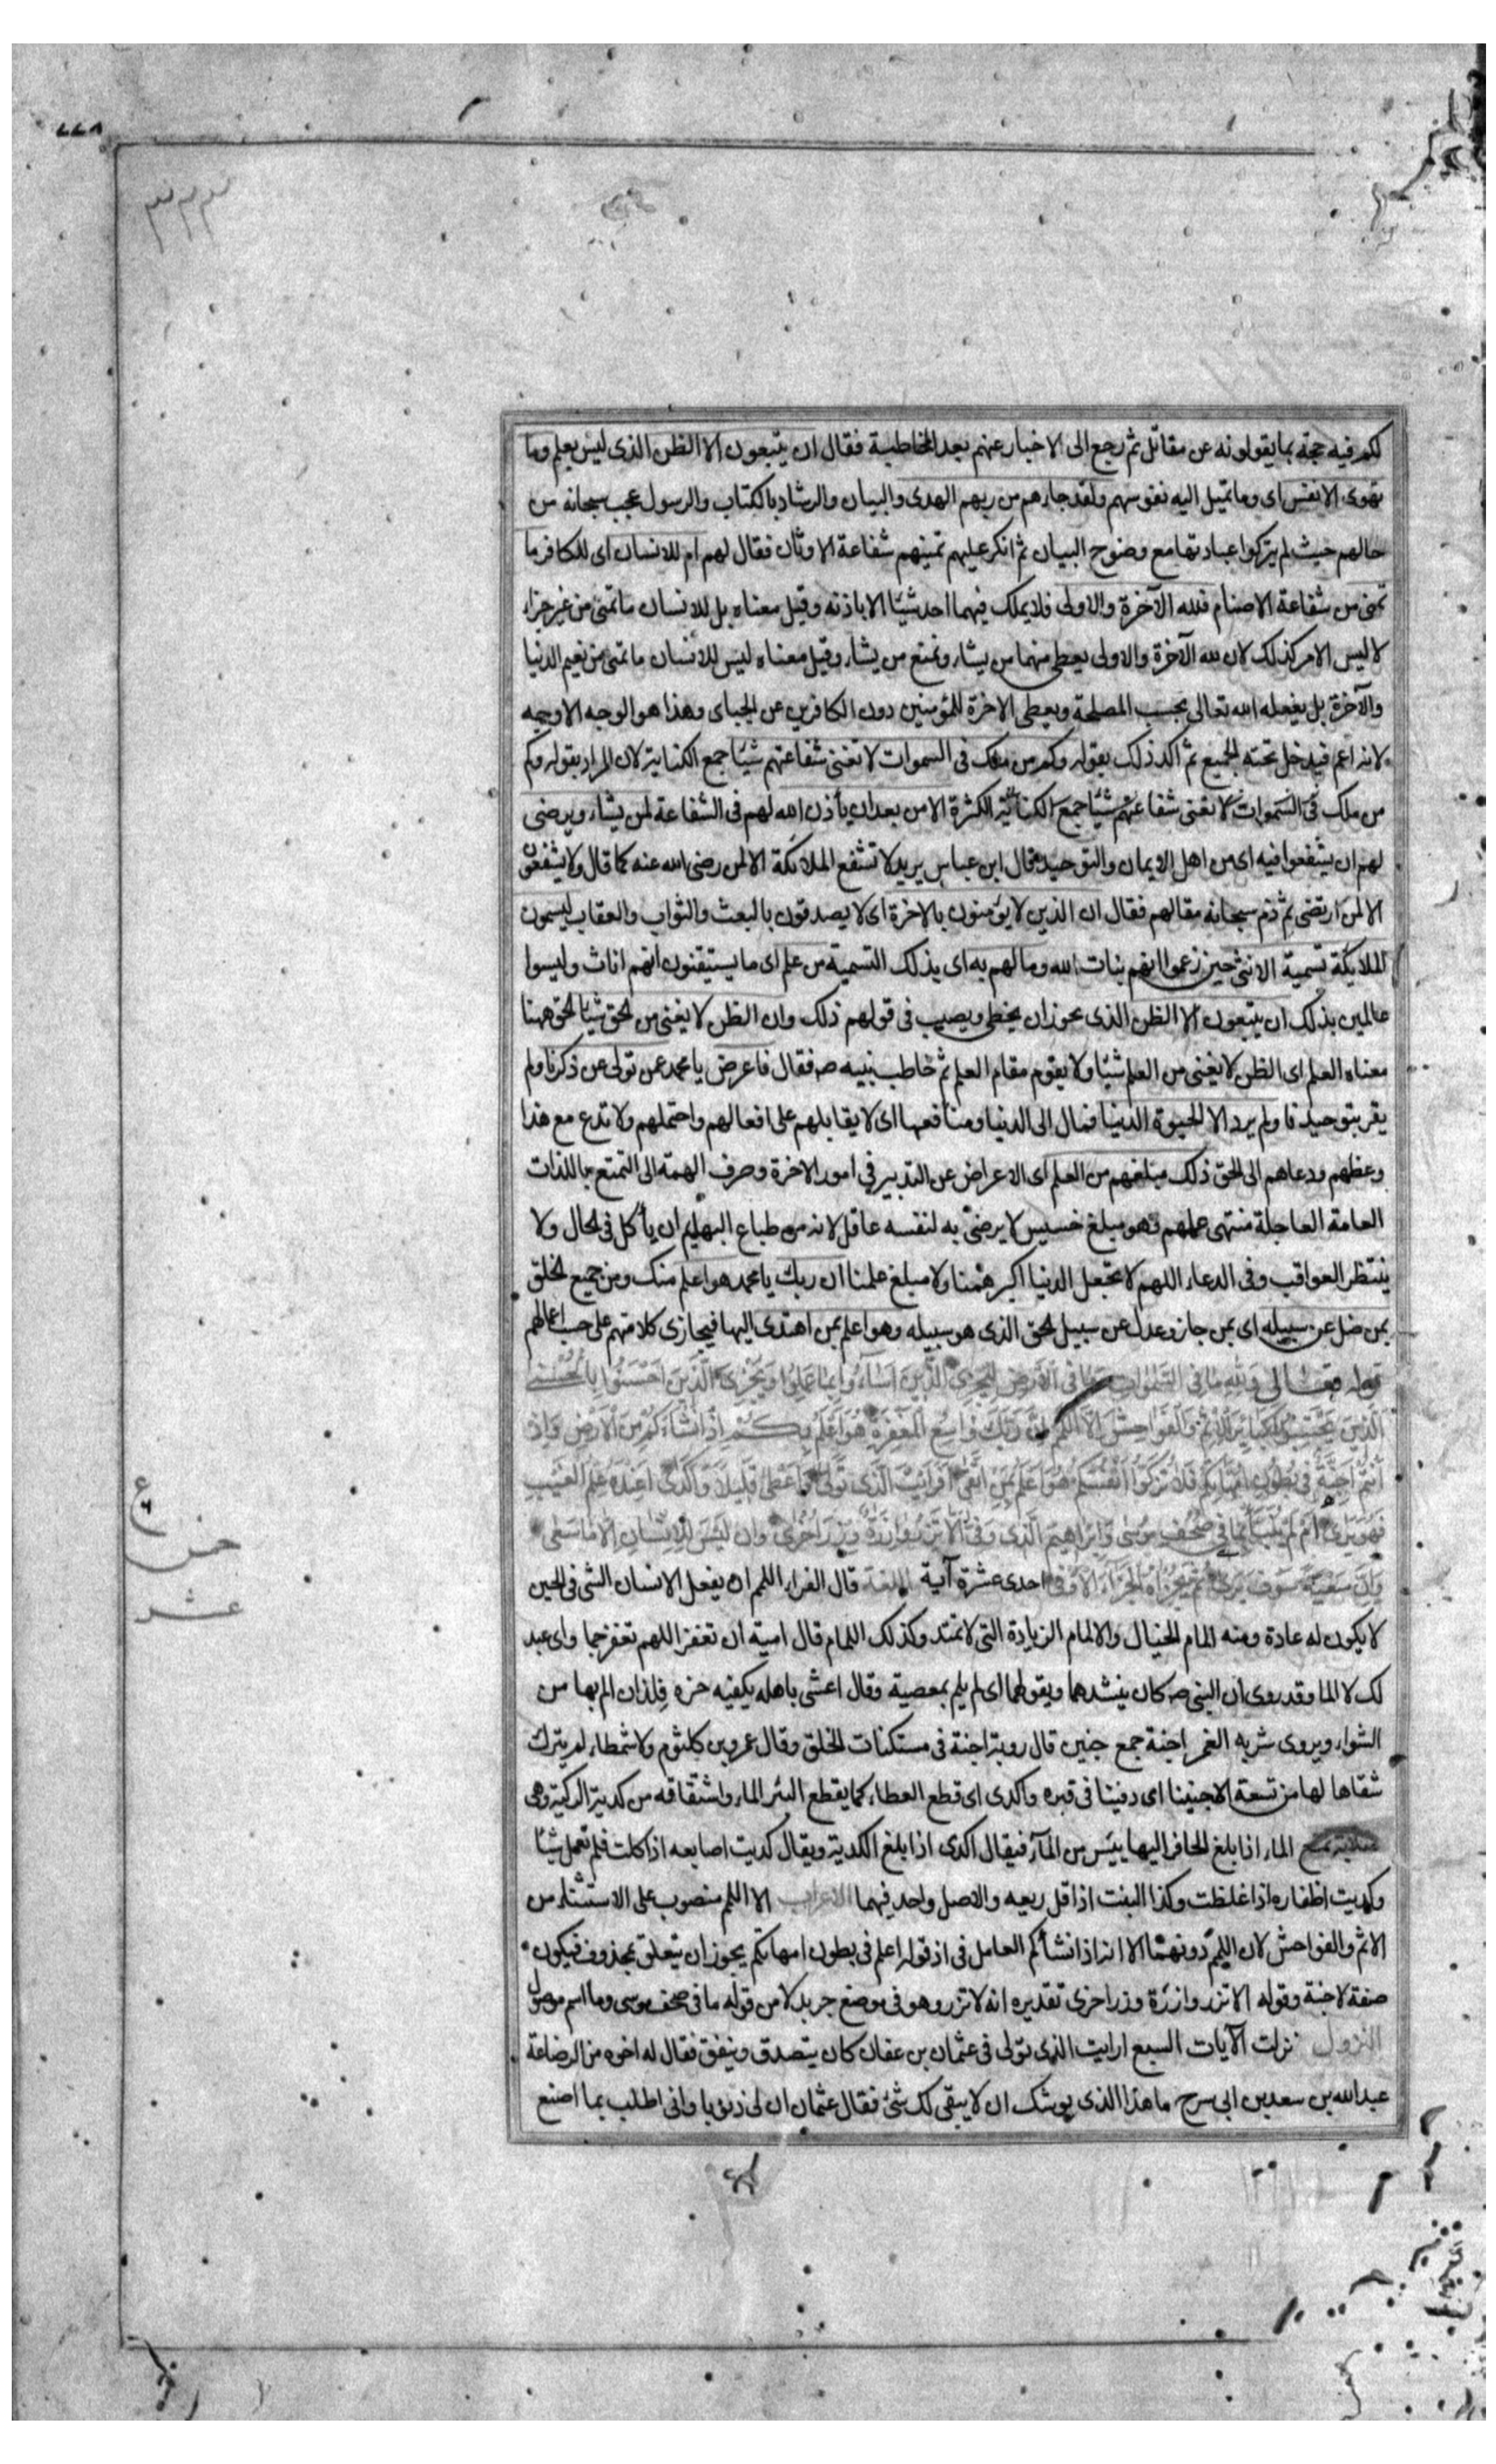 ٣٢٣
لكم فيه حجة بما يقولونه عن مقاتل ثم رجع الى الاخبار عنهم بعد المخاطبة فقال ان يتبعون الا الظن الذى ليس بعلم وما
تهوى الانفس اى وما تميل اليه نفوسهم ولقد جاءهم من ربهم الهدى والبيان والرشاد بالكتاب والرسول عجب سبحانه من
حالهم حيث لم يتركوا عبادتها مع وضوح البيان ثم انكر عليهم تمنيهم شفاعة الاوثان فقال لهم ام للانسان اى للكافر ما
تمنى من شفاعة الاصنام فلله الآخرة والاولى فلا يملك فيهما احد شيئا الا باذنه وقيل معناه بل للانسان ما تمنى من غير جزاء
لا ليس الامر كذلك لان لله الآخرة والاولى يعطى منهما من يشاء ويمنع من يشاء وقيل معناه ليس للانسان ما تمنى من نعيم الدنيا
والآخرة بل يفعله الله تعالى بحسب المصلحة ويعطى الاخرة للمؤمنين دون الكافرين عن الجباى وهذا هو الوجه الاوجه
لانه اعم فيدخل تحته الجميع ثم اكد ذلك بقوله وكم من ملك فى السموات لا تغنى شفاعتهم شيئا جمع الكناية لان المراد بقوله وكم
من ملك فى السموات لا تغنى شفاعتهم شيئا جمع الكناية الكثرة الا من بعد ان يأذن الله لهم فى الشفاعة لمن يشاء ويرضى
لهم ان يشفعوا فيه اى من اهل الايمان والتوحيد قال ابن عباس يريد لا تشفع الملائكة الا لمن رضى الله عنه كما قال ولا يشفعون
الا لمن ارتضى ثم ذم سبحانه مقالهم فقال ان الذين لا يؤمنون بالاخرة اى لا يصدقون بالبعث والثواب والعقاب ليسمون
الملايكة تسمية الانثى حين زعموا انهم بنات الله وما لهم به اى بذلك التسمية من علم اى ما يستيقنون انهم اناث وليسوا
عالمين بذلك ان يتبعون الا الظن الذى يجوز ان يخطى ويصيب فى قولهم ذلك وان الظن لا يغنى من الحق شيئا الحق ههنا
معناه العلم اى الظن لا يغنى من العلم شيئا ولا يقوم مقام العلم ثم خاطب نبيه صـ فقال فاعرض يا محمد عمن تولى عن ذكرنا ولم
يقر بتوحيدنا ولم يرد الا الحيوة الدنيا فمال الى الدنيا ومنافعها اى لا يقابلهم على افعالهم واحتملهم ولا تدع مع هذا
وعظهم ودعاهم الى الحق ذلك مبلغهم من العلم اى الاعراض عن التدبير في امور الاخرة وصرف الهمة الى التمتع باللذات
العامة العاجلة منتهى علمهم وهو مبلغ خسيس لا يرضى به لنفسه عاقل لانه من طباع البهايم ان يأكل فى الحال ولا
ينتظر العواقب وفى الدعاء اللهم لا تجعل الدنيا اكبر همنا ولا مبلغ علمنا ان ربك يا محمد هو اعلم منك ومن جميع الخلق
بمن ضل عن سبيله اى بمن جاز وعدل عن سبيل الحق الذى هو سبيله وهو اعلم بمن اهتدى اليها فيجازى كلا منهم على حسب اعمالهم
قوله تعالى ولله ما فى السموات وما فى الارض ليجزى الذين اساؤا بما عملوا ويجزى الذين احسنوا بالحسنى
الذين يجتنبون كبائر الاثم والفواحش الا اللمم ان ربك واسع المغفرة هو اعلم بكم اذ انشاءكم من الارض واذ
انتم اجنة فى بطون امهاتكم فلا تزكوا انفسكم هو اعلم بمن اتقى افرايت الذى تولى واعطى قليلا واكدى اعنده علم الغيب
فهو يرى ام لم ينبأ بما فى صحف موسى وابراهيم الذى وفى الا تزر وازرة وزر اخرى وان ليس للانسان الا ما سعى
وان سعيه سوف يرى ثم يجزاه الجزاء الاوفى احدى عشرة آية اللغة قال الفراء اللمم ان يفعل الانسان الشى فى الحين
لا يكون له عادة ومنه المام الخيال والالمام الزيادة التى لا تمتد وكذلك اللمام قال امية ان تغفر اللهم تغفر جما واى عبد
لك لا الما وقد روى ان النبى صـ كان ينشدهما ويقولهما اى لم يلم بمعصية وقال اعشى باهله يكفيه حزه فلذان الم بها من
الشواء ويروى شربه الغمر اجنة جمع جنين قال روبة اجنة فى مستكنات الخلق وقال عمرو بن كلثوم ولا شمطاء لم يترك
شقاها لها من تسعة الا جنينا اى دفينا فى قبره واكدى اى قطع العطاء كما يقطع البئر الماء واشتقاقه من كدية الركية وهى
صلابة تمنع الماء اذا بلغ الحافر اليها يئس من المآء فيقال اكدى اذا بلغ الكدية ويقال كديت اصابعه اذا كلت فلم تعمل شيئا
وكديت اظفاره اذا غلظت وكذا النبت اذا قل ريعه والاصل واحد فيهما الاعراب الا اللمم منصوب على الاستثناء من
الاثم والفواحش لان اللمم دونهما الا انه اذ انشأكم العامل فى اذ قوله اعلم فى بطون امهاتكم يجوز ان يتعلق بمحذوف فيكون
صفة لاجنة وقوله الا تزر وازرة وزر اخرى تقديره انه لا تزر وهو فى موضع جر بدلا من قوله ما فى صحف موسى وما اسم موصول
النزول نزلت الآيات السبع ارايت الذى تولى فى عثمان بن عفان كان يتصدق وينفق فقال له اخوه من الرضاعة
عبدالله بن سعد بن ابى سرح ما هذا الذى يوشك ان لا يبقى لك شئ فقال عثمان ان لى ذنوبا وانى اطلب بما اصنع
ع
عشر